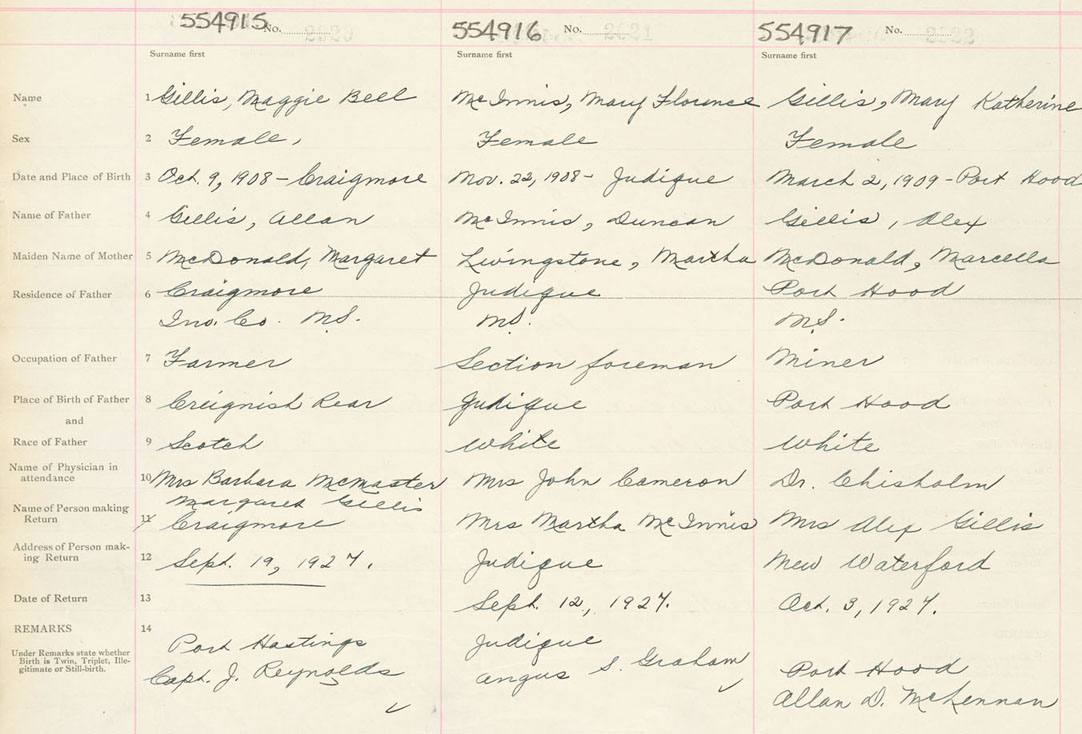 554915 No. 2020 554916 No. 2021 554917 No. 2022
Surname first Surname first Surname first
Name 1 Gillis, Maggie Bell McInnis, Mary Florence Gillis, Mary Katherine
Sex 2 Female, Female Female
Date and Place of Birth 3 Oct. 9, 1908 - Craigmore Nov. 22, 1908 - Judique March 2, 1909 - Port Hood
Name of Father 4 Gillis, Allan McInnis, Duncan Gillis, Alex
Maiden Name of Mother 5 McDonald, Margaret Livingstone, Martha McDonald, Marcella
Residence of Father 6 Craigmore Judique Port Hood
Inv. Co. N.S. N.S. N.S.
Occupation of Father 7 Farmer Section foreman Miner
Place of Birth of Father 8 Creignish Rear Judique Port Hood
and
Race of Father 9 Scotch White White
Name of Physician in
attendance 10 Mrs Barbara McMaster Mrs John Cameron Dr. Chisholm
Margaret Gillis
Name of Person making
Return 11 Craigmore Mrs Martha McInnis Mrs Alex Gillis
Address of Person mak-
ing Return 12 Sept. 19, 1927. Judique New Waterford
Date of Return 13 Sept. 12, 1927. Oct. 3, 1927.
REMARKS 14 Port Hastings Judique Port Hood
Under Remarks state whether
Birth is Twin, Triplet, Ille-
gitimate or Still-birth.
Capt. J. Reynolds Angus S. Graham Allan D. McLennan